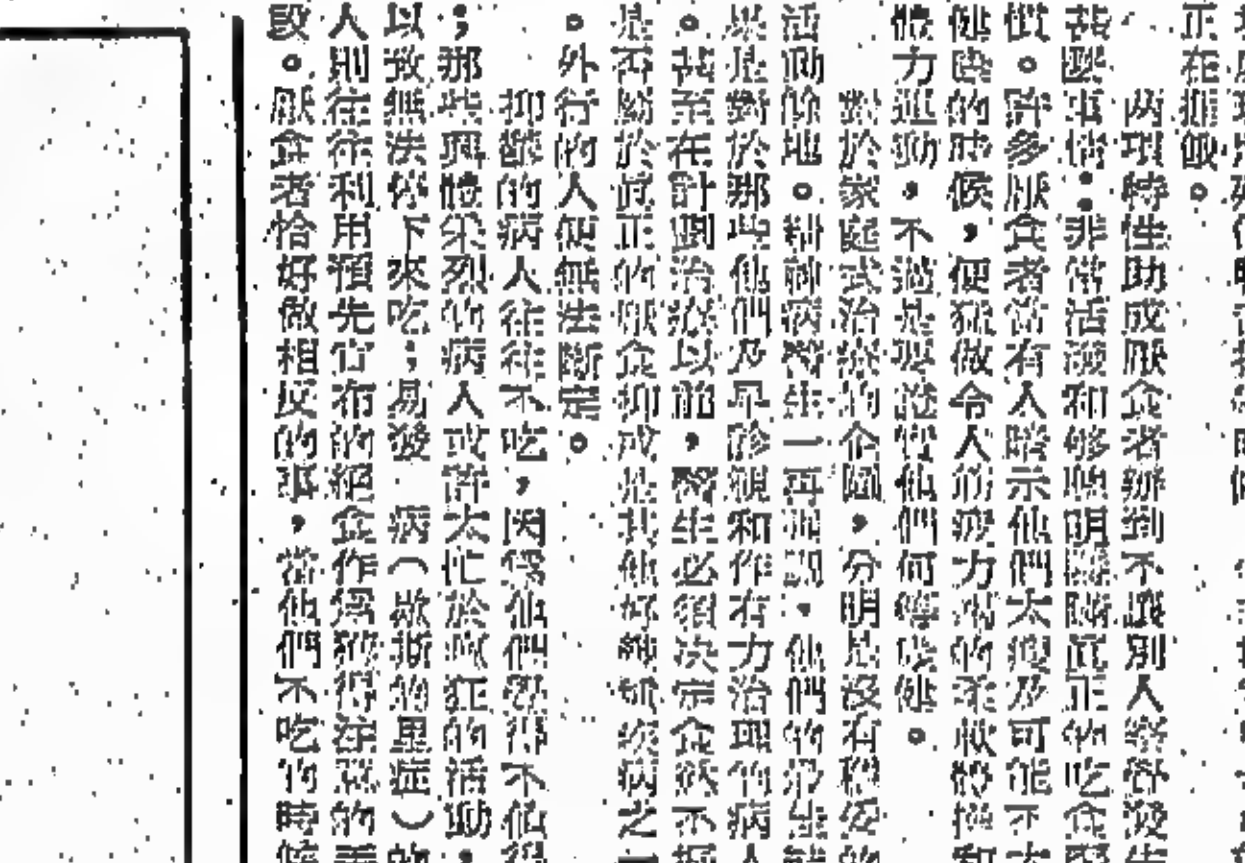 正在捱餓。
两項特性助成厭食者辦到不讓別人察覺發生
甚麼事情：非常活潑和够聰明隱瞞眞正的吃食習
慣。許多厭食者當有人暗示他們太瘦及可能不太
健康的時候，便猛做令人筋疲力竭的柔軟體操和
體力運動，不過是要證實他們何等健康。
對於家庭式治療的企圖，分明是沒有穩妥的
活動餘地。精神病醫生一再強調，他們的求生
果是對於那些他們及早診視和作有力治理的病人
。甚至在計劃治療以前，醫生必須決定食慾不振
是否屬於眞正的厭食抑或是其他好幾種疾病之一
。外行的人便無法斷定。
抑鬱的病人往往不吃，因爲他們覺得不值得
；那些興體采烈的病人或許太忙於瘋狂的活動，
以致無法停下來吃；易發病（歇斯的里症）的
人則往往利用預先宣布的絕食作爲獲得注意的手
段。厭食者恰好做相反的事，當他們不吃的時候